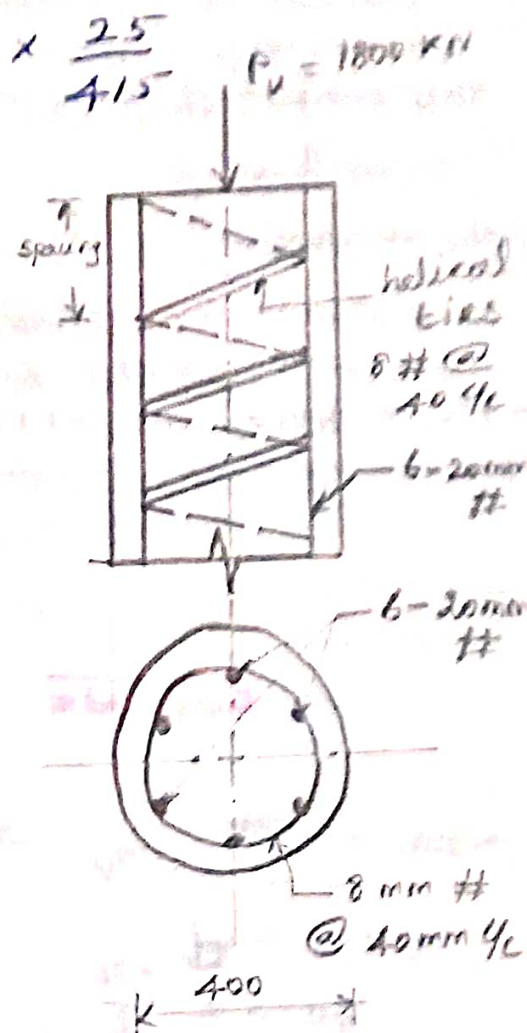 × 25/415
Pu = 1800 KN
spacing
helical
ties
8 # @
40 c/c
6-20mm
#
6-20mm
#
8 mm #
@ 40mm c/c
400